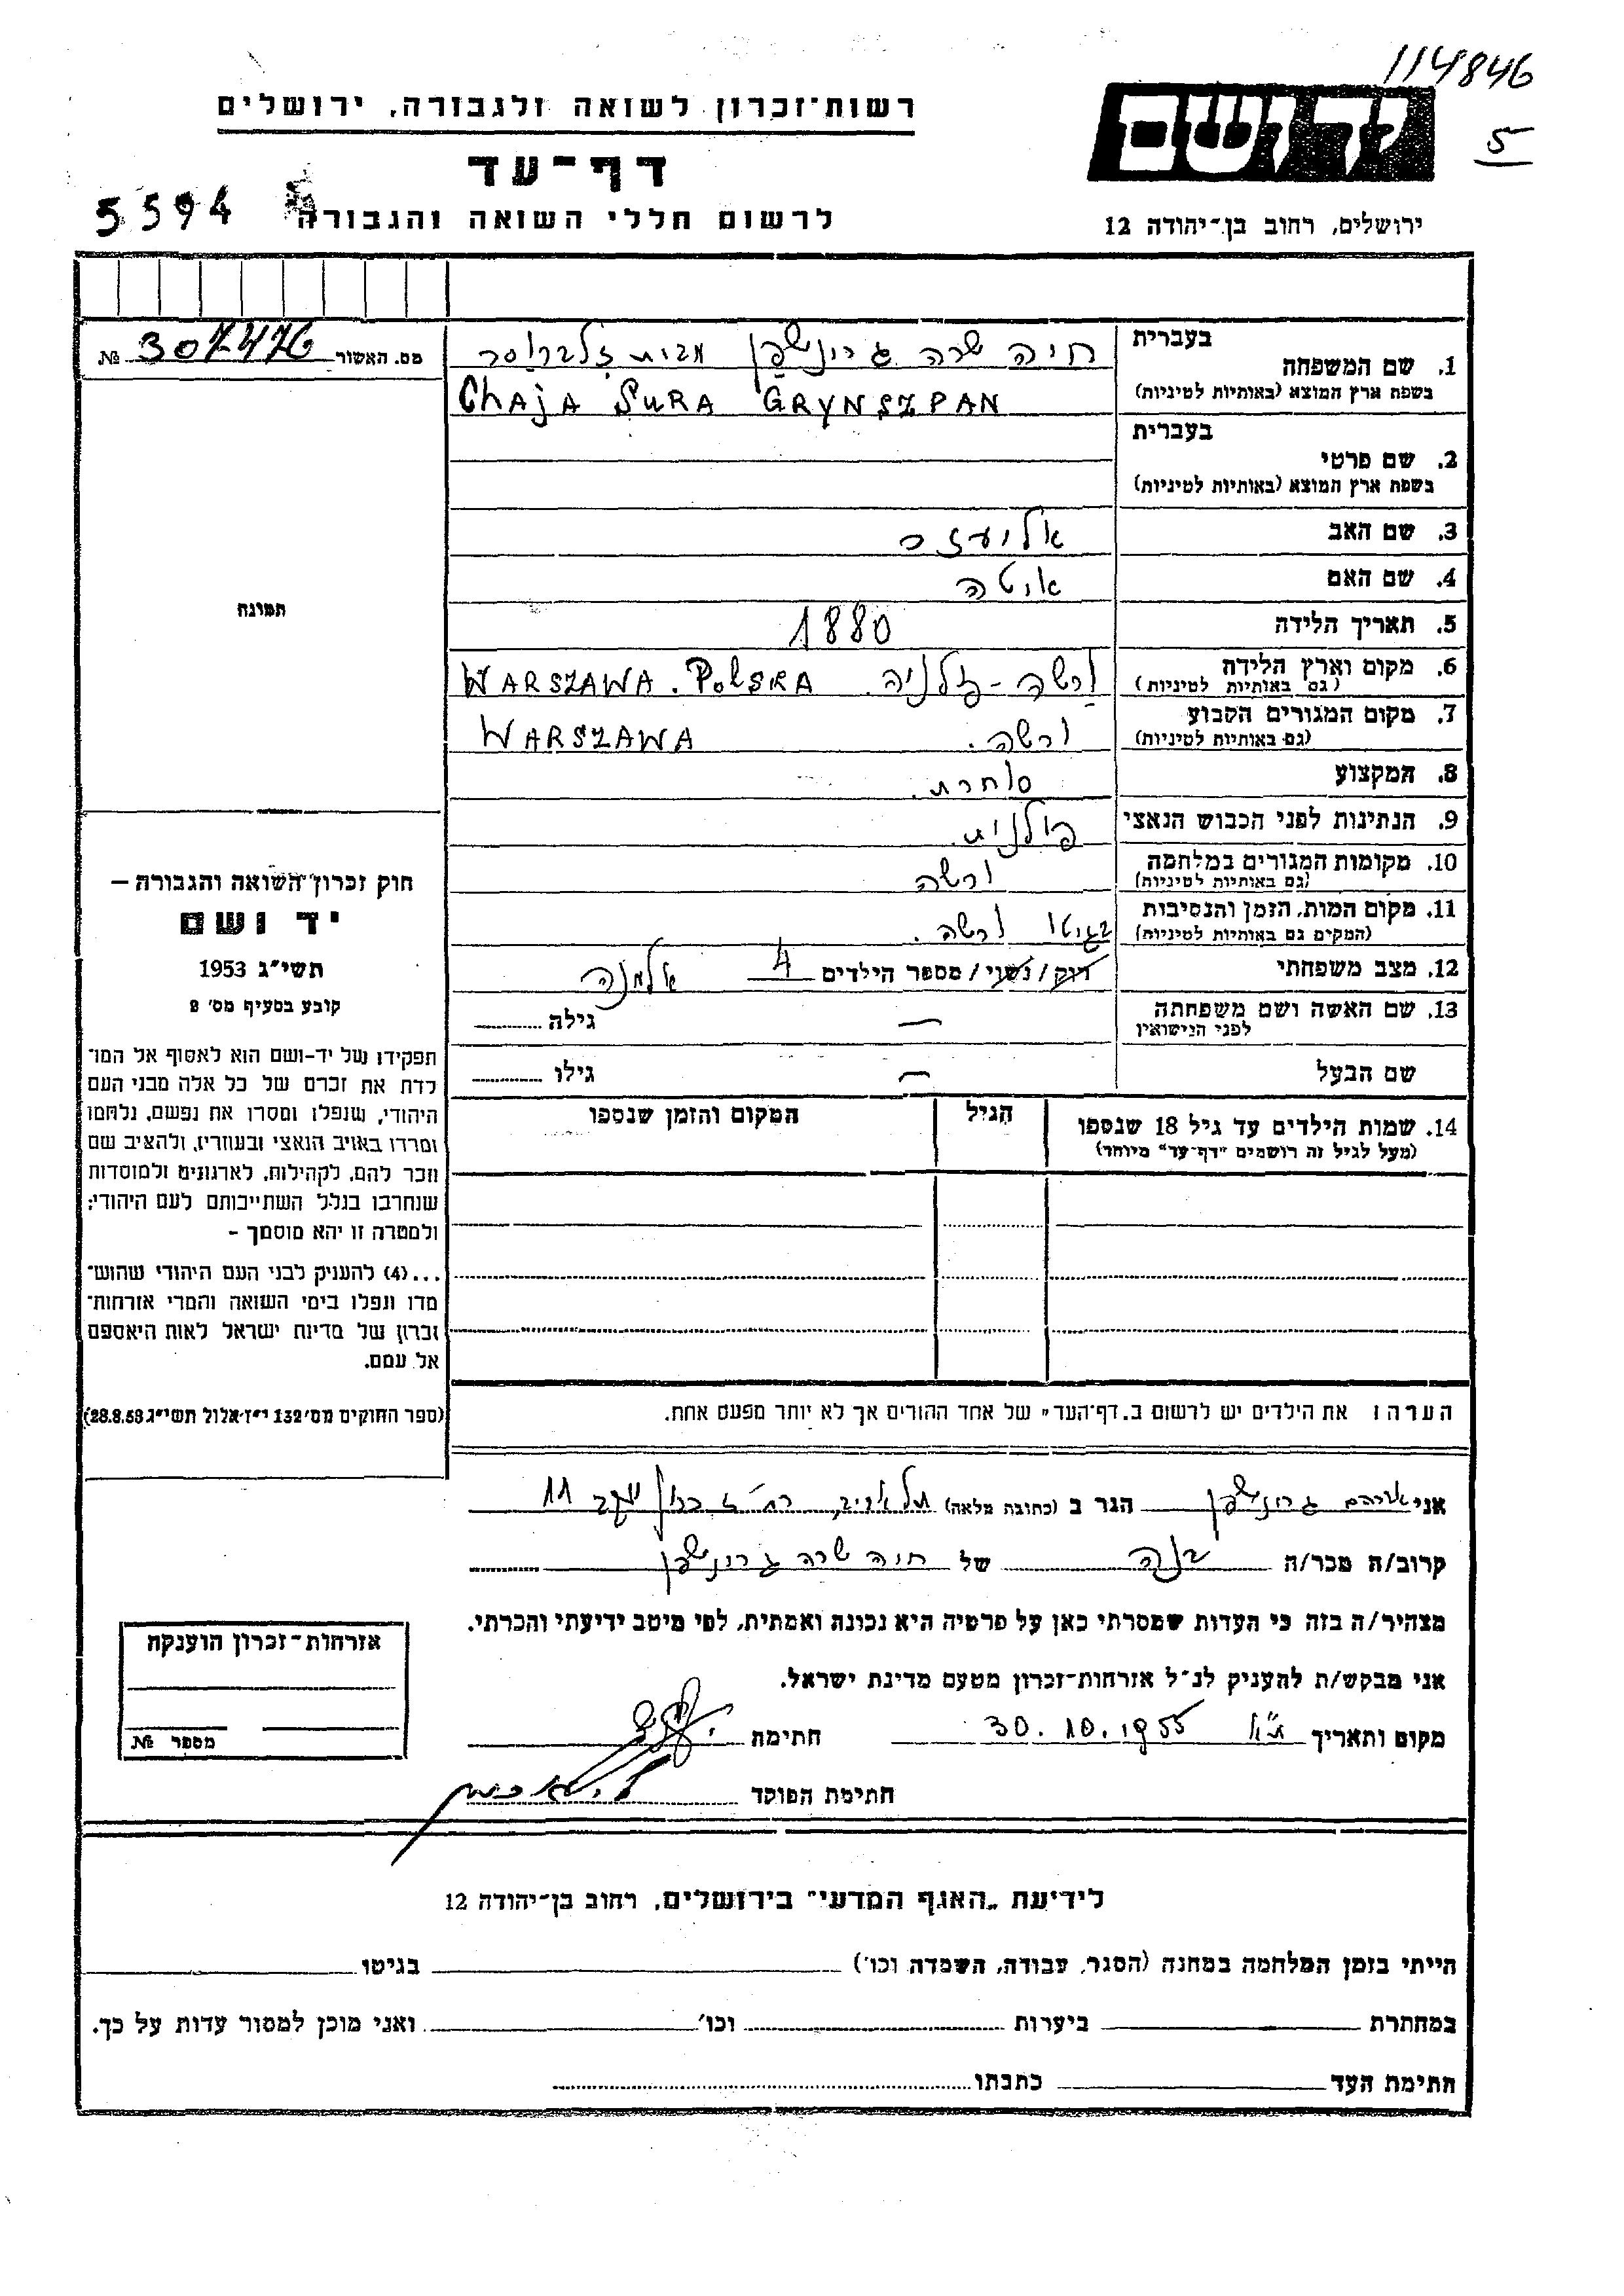 114846
5
יד ושם
ירושלים, רחוב בן-יהודה 12
רשות-זכרון לשואה ולגבורה, ירושלים
דף-עד
לרשום חללי השואה והגבורה
5594
מס. האשור 307476 №
תמונה
חוק זכרון השואה והגבורה –
יד ושם
תשי״ג 1953
קובע בסעיף מס׳ 8
תפקידו של יד-ושם הוא לאסוף אל המו־
לדת את זכרם של כל אלה מבני העם
היהודי, שנפלו ומסרו את נפשם, נלחמו
ומרדו באויב הנאצי ובעוזריו, ולהציב שם
וזכר להם, לקהילות, לארגונים ולמוסדות
שנחרבו בגלל השתייכותם לעם היהודי;
ולמטרה זו יהא מוסמך –
...(4) להעניק לבני העם היהודי שהוש־
מדו ונפלו בימי השואה והמרי אזרחות־
זכרון של מדינת ישראל לאות היאספם
אל עמם.
(ספר החוקים מס׳ 132 י״ז אלול תשי״ג 28.8.53)
בעברית
1. שם המשפחה חיה שרה גרינשפן מבית
בשפת ארץ המוצא (באותיות לטיניות) Chaja Sura GRYNSZPAN
בעברית
2. שם פרטי
בשפת ארץ המוצא (באותיות לטיניות)
3. שם האב אליעזר
4. שם האם איטה
5. תאריך הלידה 1880
6. מקום וארץ הלידה ורשה - פולניה. WARSZAWA. POLSKA
(גם באותיות לטיניות)
7. מקום המגורים הקבוע ורשה. WARSZAWA
(גם באותיות לטיניות)
8. המקצוע סוחרת.
9. הנתינות לפני הכבוש הנאצי פולנית.
10. מקומות המגורים במלחמה ורשה
(גם באותיות לטיניות)
11. מקום המות, הזמן והנסיבות בגיטו ורשה.
(המקום גם באותיות לטיניות)
12. מצב משפחתי רוק/נשוי/מספר הילדים 4 אלמנה
13. שם האשה ושם משפחתה — גילה
לפני הנישואין
שם הבעל — גילו
14. שמות הילדים עד גיל 18 שנספו הגיל המקום והזמן שנספו
(מעל לגיל זה רושמים "דף-עד" מיוחד)
הערה: את הילדים יש לרשום ב„דף-העד" של אחד ההורים אך לא יותר מפעם אחת.
אני אברהם גרינשפן הגר ב (כתובת מלאה) תל אביב, 11
קרוב/ה מכר/ה בנה של חיה שרה גרינשפן
מצהיר/ה בזה כי העדות שמסרתי כאן על פרטיה היא נכונה ואמתית, לפי מיטב ידיעתי והכרתי.
אני מבקש/ת להעניק לנ״ל אזרחות-זכרון מטעם מדינת ישראל.
מקום ותאריך ת״א 30.10.1955 חתימה
חתימת הפוקד
אזרחות-זכרון הוענקה
מספר №
לידיעת „האגף המדעי" בירושלים, רחוב בן-יהודה 12
הייתי בזמן המלחמה במחנה (הסגר, עבודה, השמדה וכו׳) בגיטו
במחתרת ביערות וכו׳ ואני מוכן למסור עדות על כך.
חתימת העד כתבתו